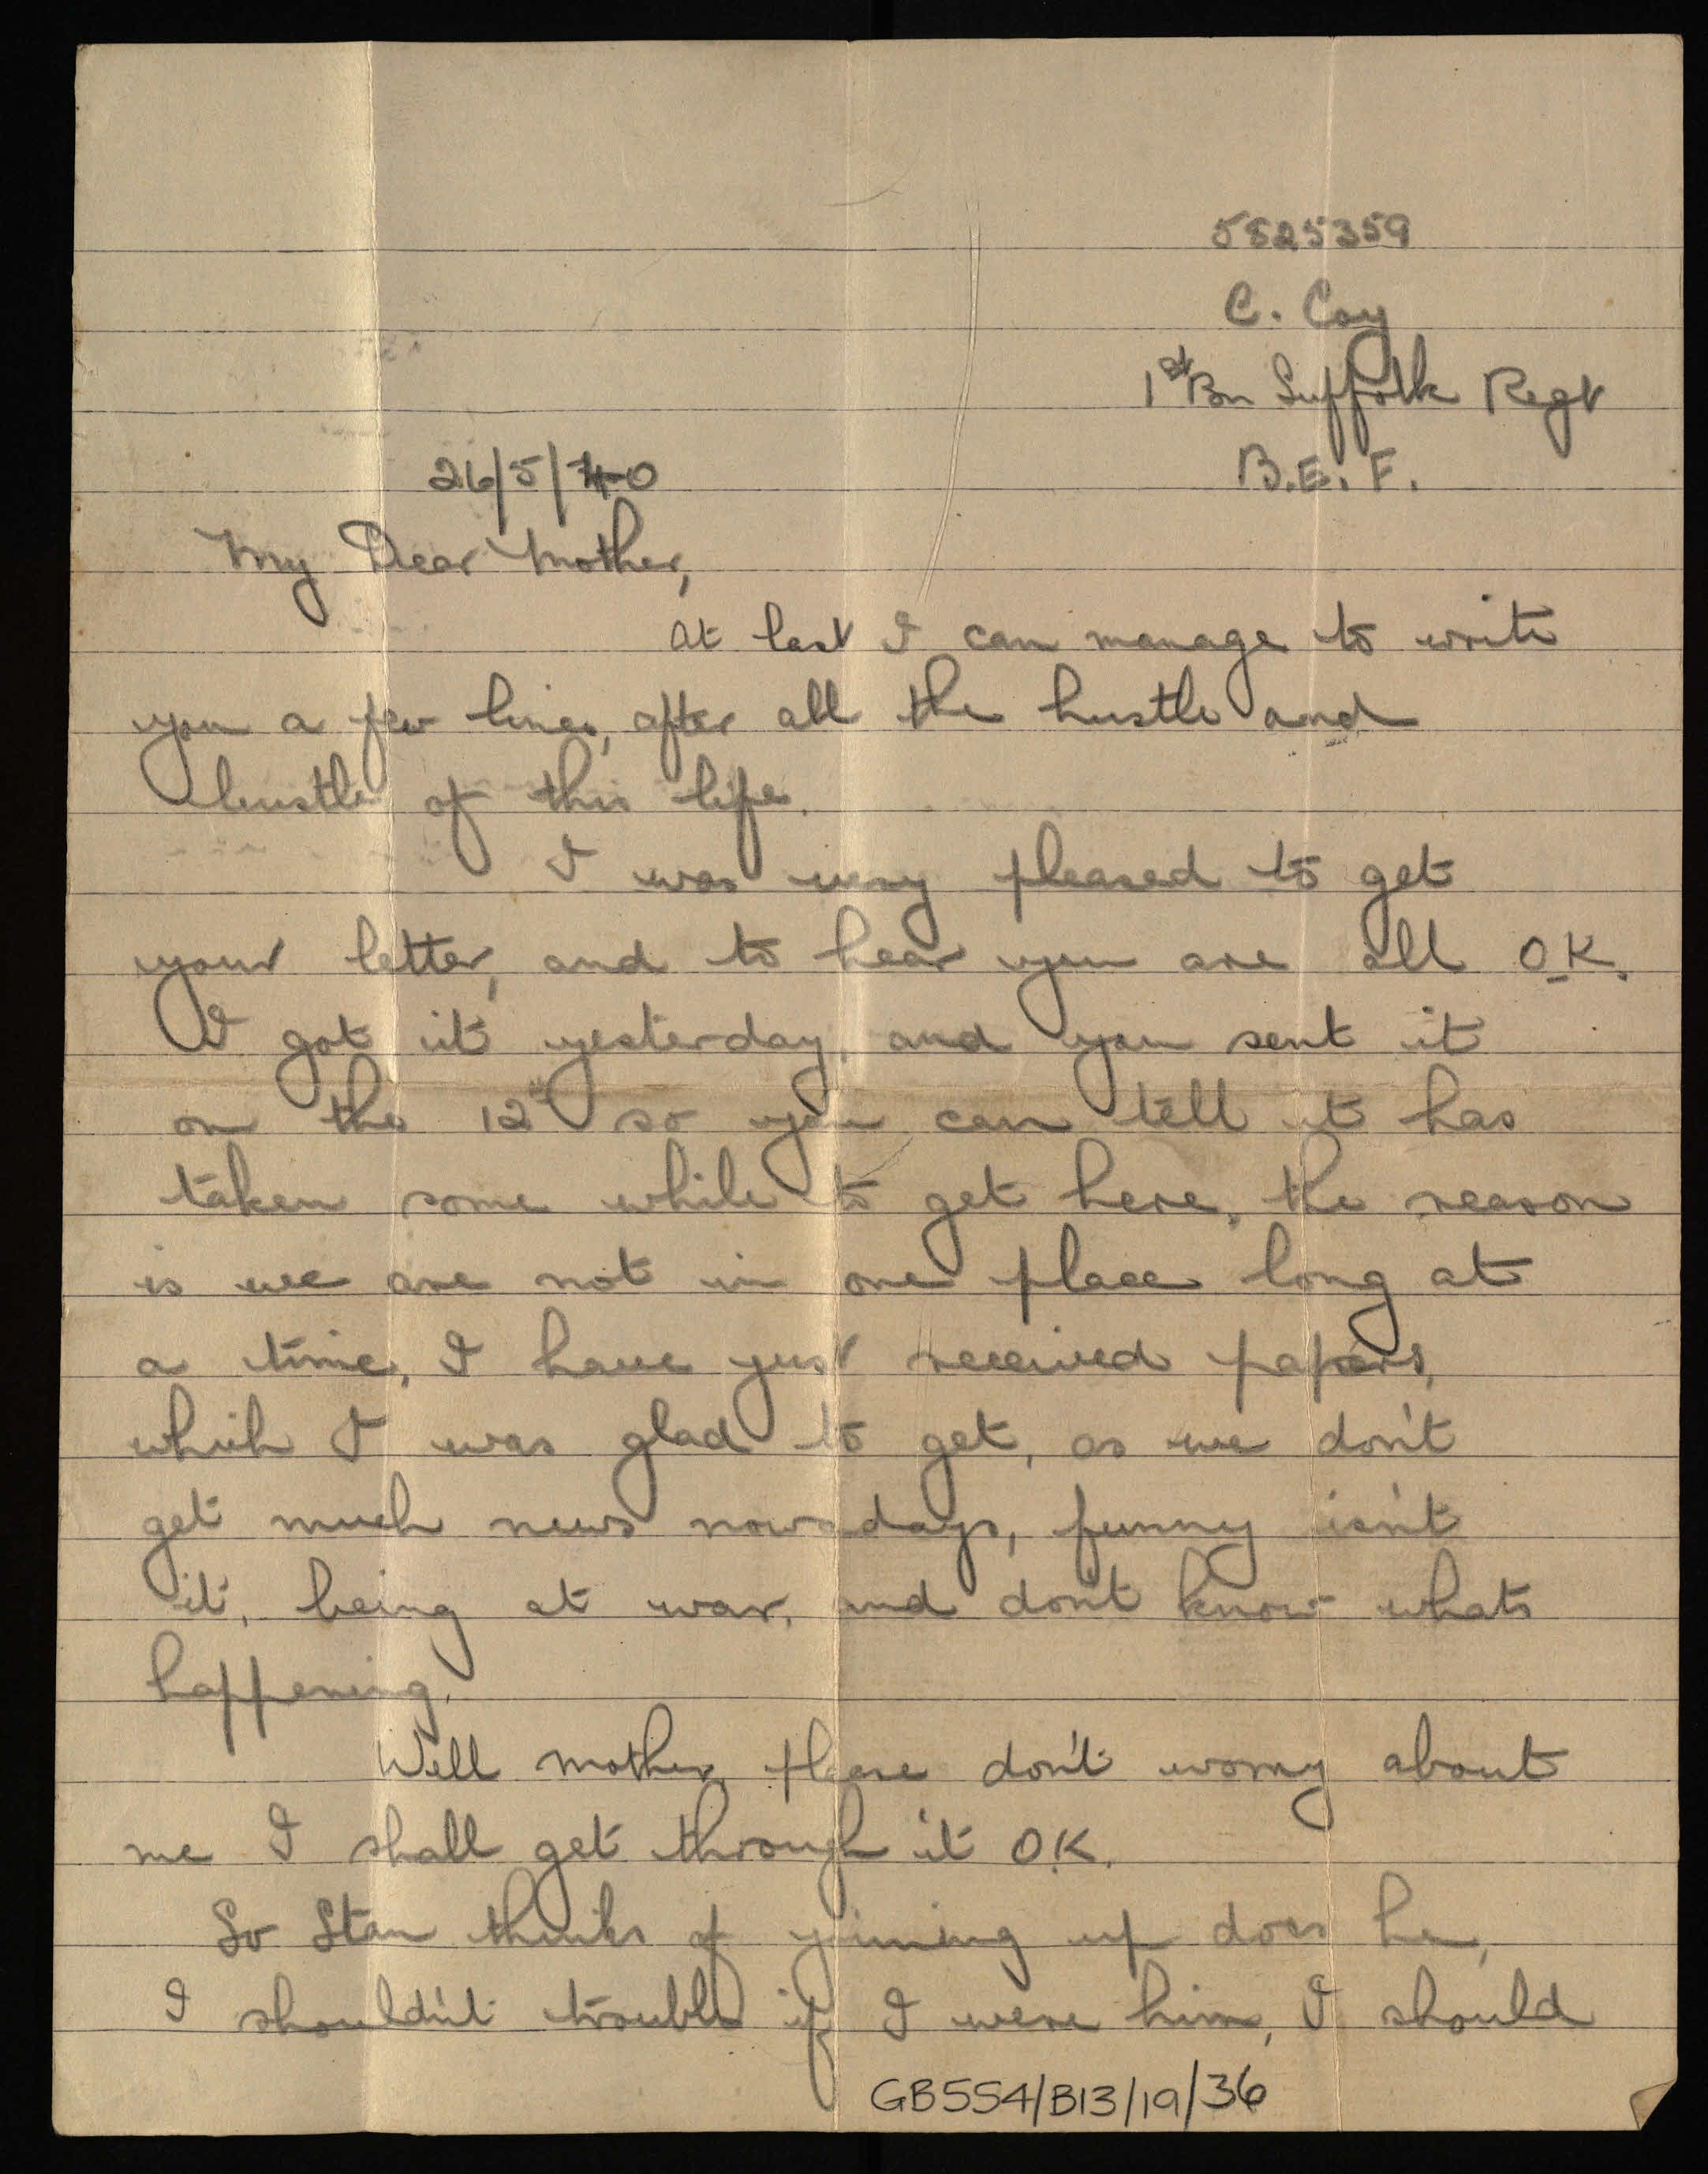 5825359
C. Coy
1st Bn Suffolk Regt
26/5/40
B.E.F.
My Dear Mother,
At last I can manage to write
you a few lines, after all the hustle and
bustle of this life.
I was very pleased to get
your letter, and to hear you are all O.K.
I got it yesterday, and you sent it
on the 12th so you can tell it has
taken some while to get here, the reason
is we are not in one place long at
a time, I have just received papers,
which I was glad to get, as we don't
get much news nowadays, funny isn't
it, being at war, and don't know whats
happening.
Well mother please don't worry about
me I shall get through it O.K.
So Stan thinks of joining up does he,
I shouldn't trouble if I were him, I should
GB554/B13/19/36